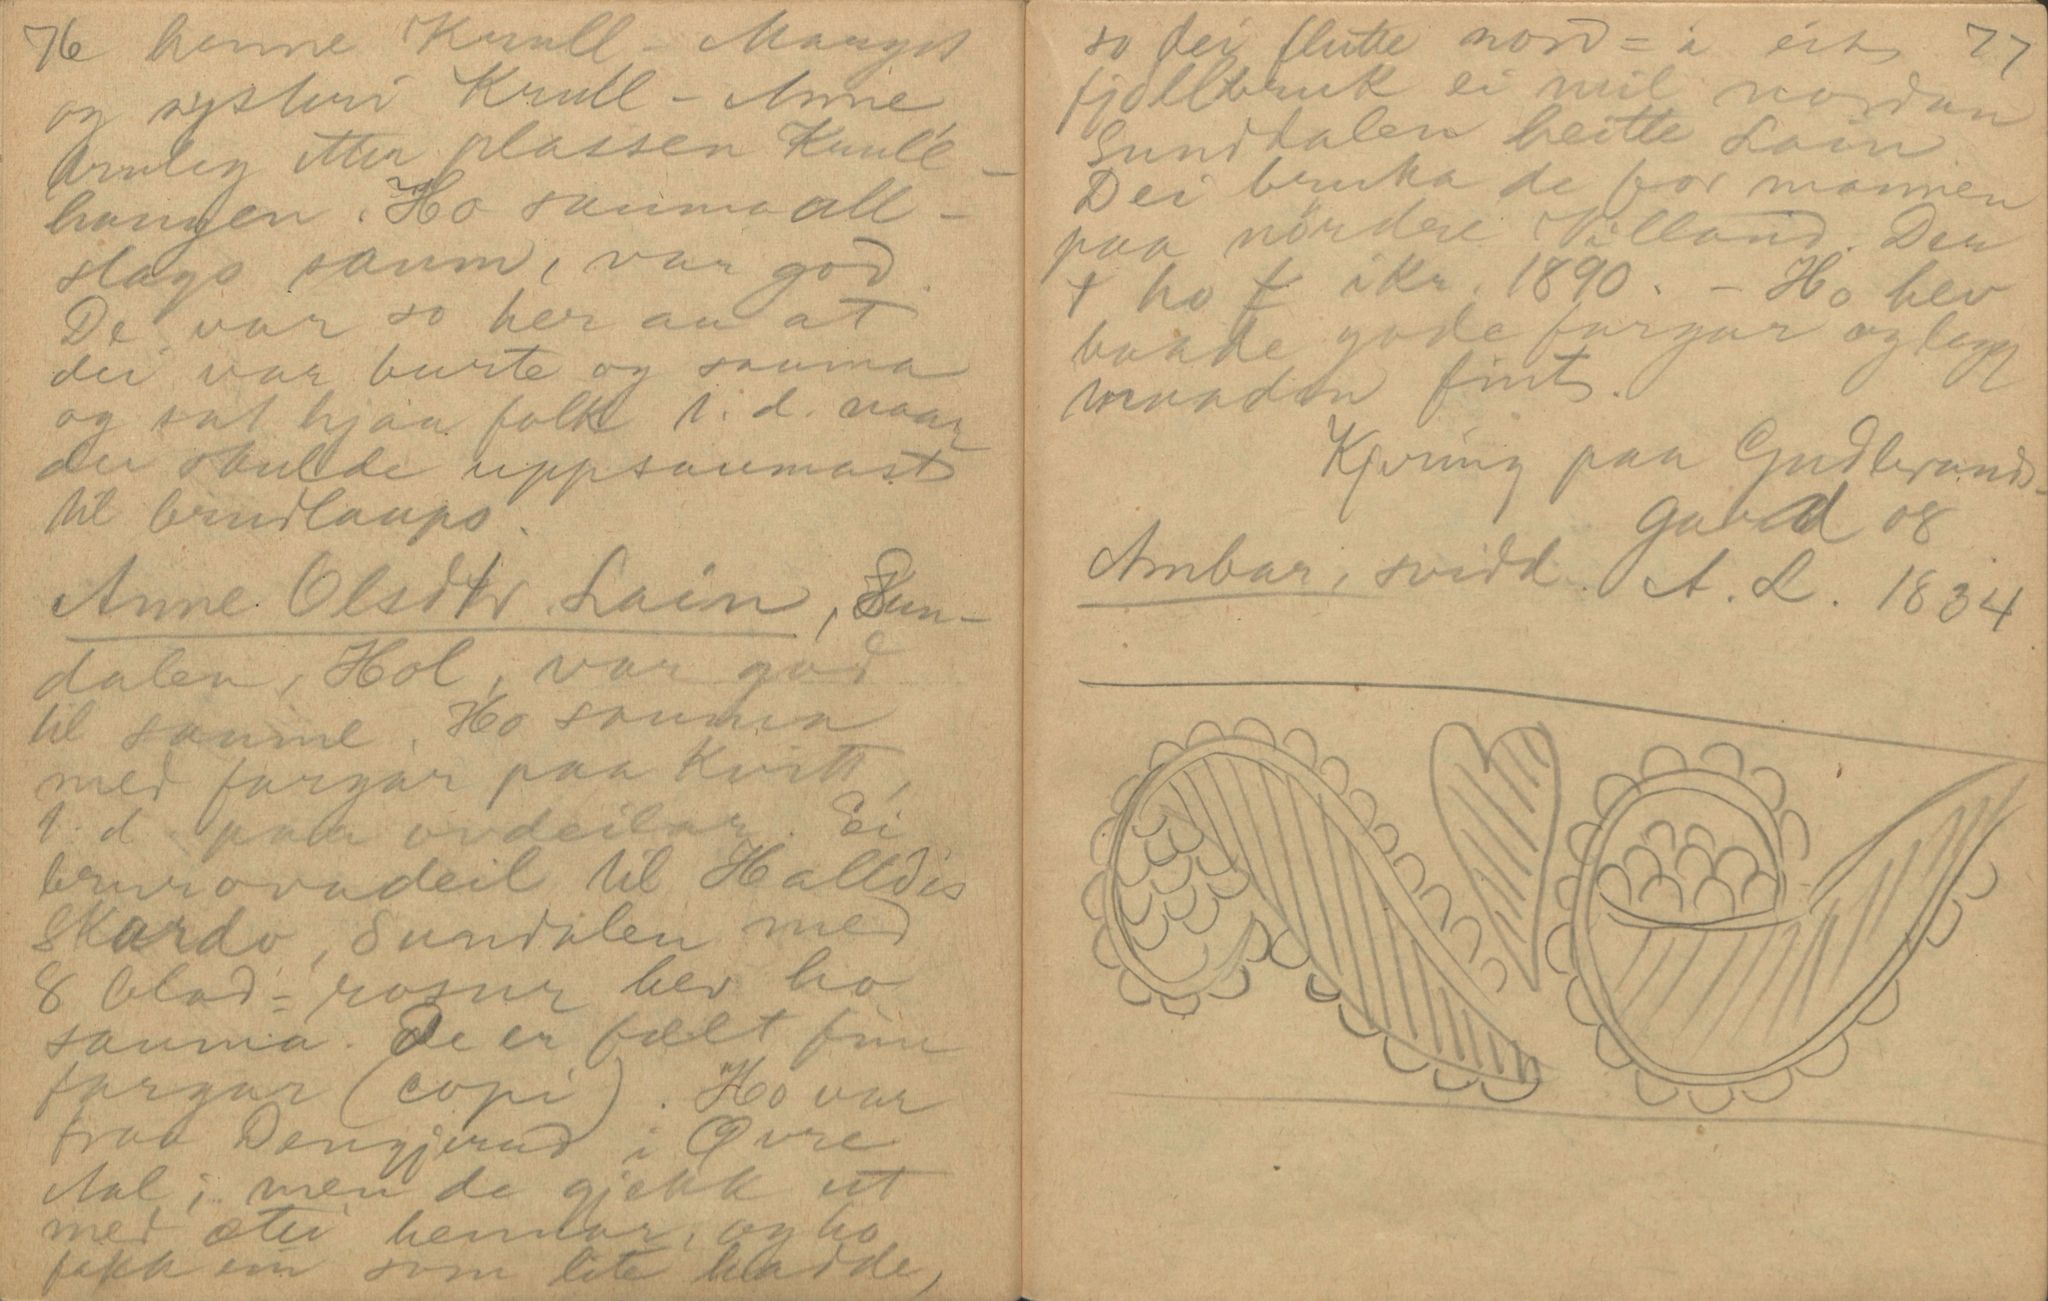 76 henne Krull - Margit
og systeri Krull - Anne,
truleg etter plassen Krull -
haugen. Ho sauma all -
slags saum, var god.
De var so her au at
dei var burte og sauma
og sat hjaa folk t. d. naar
dei skulde uppsaumast
til brudlaups.
Anne Olsdtr Lain, Sun-
dalen, Hol, var god
til saume. Ho sauma
med fargar paa kvitt,
t. d. paa ovdeilar. Ei
brurovadeil til Halldis
Skardo, Sundalen med
8 blad = rosur hev ho
sauma. De er fælt fine
fargar (copi). Ho var
fraa Dengjerud i Øvre
Aal; men de gjekk ut
med ætei hennar, og ho
fekk ein som lite hadde,
77
so dei flutte nord = i eit
fjellbruk ei mil nordan
Sunddalen heitte Lain
Dei bruka de for mannen
paa nördre Villand. Der
† ho † ikr. 1890. - Ho hev
baade gode fargar og lagt
maaden fint.
Kjering paa Gudbrands-
gard 08
Ambar, svidd. A. L. 1834